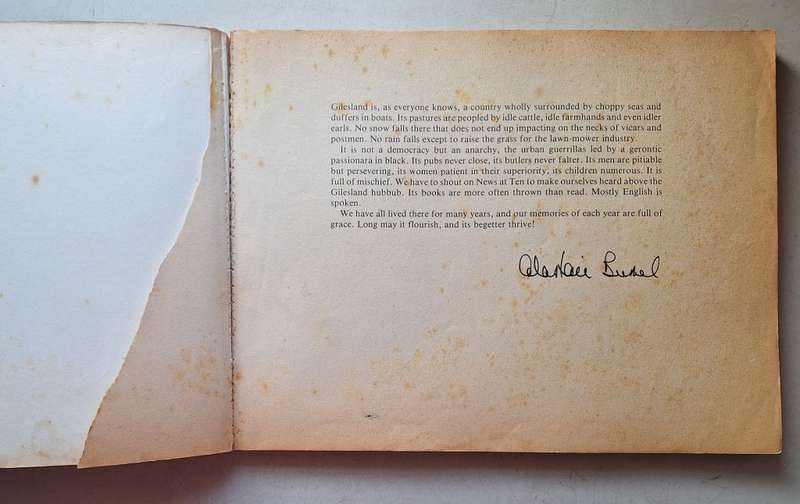 Gilesland is, as everyone knows, a country wholly surrounded by choppy seas and
duffers in boats. Its pastures are peopled by idle cattle, idle farmhands and even idler
earls. No snow falls there that does not end up impacting on the necks of vicars and
postmen. No rain falls except to raise the grass for the lawn-mower industry.
It is not a democracy but an anarchy, the urban guerrillas led by a gerontic
passionara in black. Its pubs never close, its butlers never falter. Its men are pitiable
but persevering, its women patient in their superiority, its children numerous. It is
full of mischief. We have to shout on News at Ten to make ourselves heard above the
Gilesland hubbub. Its books are more often thrown than read. Mostly English is
spoken.
We have all lived there for many years, and our memories of each year are full of
grace. Long may it flourish, and its begetter thrive!
Alastair Burnet